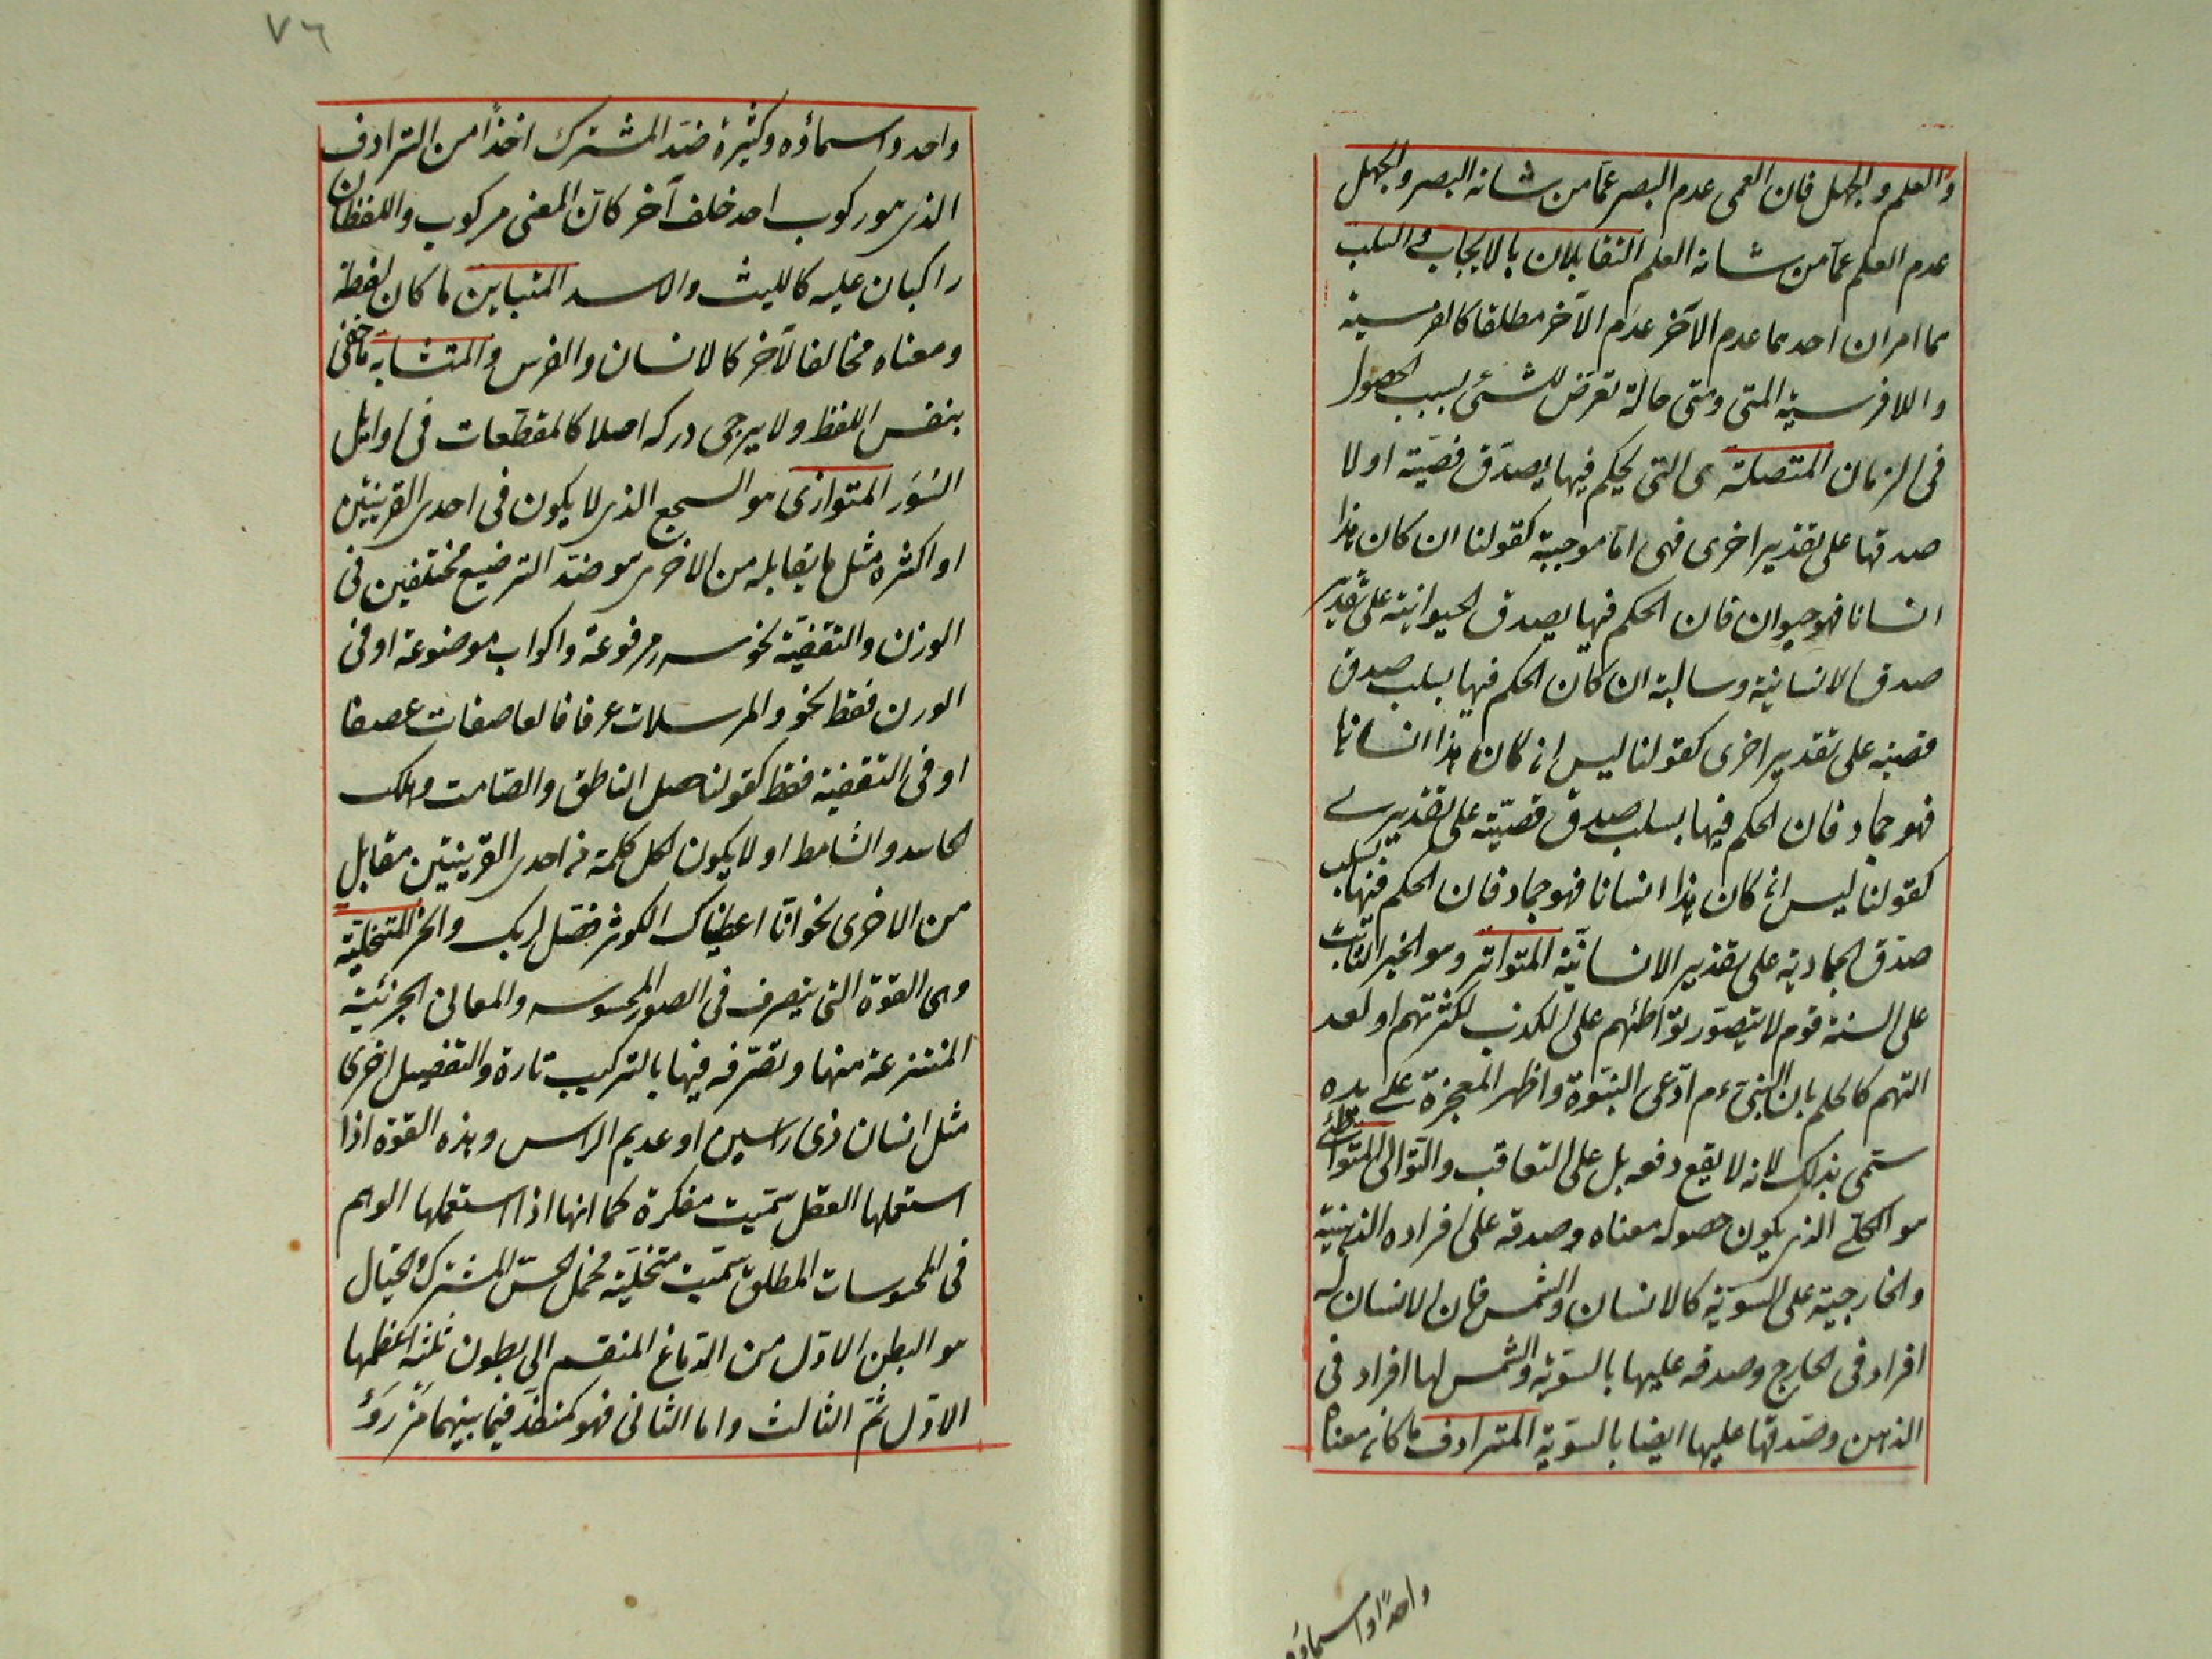 والعلم والجهل فان العمى عدم البصر عما من شانه البصر والجهل
عدم العلم عما من شانه العلم المتقابلان بالايجاب والسلب
هما امران احدهما عدم الآخر عدم الآخر مطلقا كالفرسية
واللافرسية المتى ومتى حالة تعرض للشئ بسبب الحصول
فى الزمان المتصلة هى التى يحكم فيها بصدق قضية او لا
صدقها على تقدير اخرى فهى اما موجبة كقولنا ان كان هذا
انسانا فهو حيوان فان الحكم فيها بصدق الحيوانية على تقدير
صدق الانسانية وسالبة ان كان الحكم فيها بسلب صدق
قضية على تقدير اخرى كقولنا ليس ان كان هذا انسانا
فهو جماد فان الحكم فيها بسلب صدق قضية على تقدير
كقولنا ليس ان كان هذا انسانا فهو جماد فان الحكم فيها بسلب
صدق الجمادية على تقدير الانسانية المتواتر وهو الخبر الثابت
على السنة قوم لا يتصور تواطئهم على الكذب لكثرتهم او لعد
التهم كالحكم بان النبى عم ادعى النبوة واظهر المعجزة على يده
سمى بذلك لانه لا يقع دفعه بل على التعاقب والتوالى المتواطئ
هو الكلى الذى يكون حصول معناه وصدقه على افراده الذهنية
والخارجية على السوية كالانسان والشمس فان الانسان له
افراد فى الخارج وصدقه عليها بالسوية والشمس لها افراد فى
الذهن وصدقها عليها ايضا بالسوية المترادف ما كان معناه
واحدًا واسماؤه
٧٦
واحد واسماؤه وكثيرة ضد المشترك اخذًا من الترادف
الذى هو ركوب احد خلف آخر كان المعنى مركوب واللفظان
راكبان عليه كالليث والاسد المتباين ما كان لفظه
ومعناه مخالفا لآخر كالانسان والفرس والمتشابه ما خفى
بنفس اللفظ ولا يرجى دركه اصلا كالمقطعات فى اوايل
السُوَر المتوازى هو السجع الذى لا يكون فى احدى القرينتين
او اكثره مثل ما يقابله من الاخرى هو ضد الترضيع مختلفين فى
الوزن والتقفية نحو سرر مرفوعة واكواب موضوعة او فى
الوزن فقط نحو والمرسلات عرفا فالعاصفات عصفا
او فى التقفية فقط كقولنا حصل الناطق والصامت وهلك
الحاسد والشامط او لا يكون لكل كلمة فى احدى القرينتين مقابل
من الاخرى نحو انّا اعطيناك الكوثر فصل لربك وانحر المتخيلة
وهى القوة التى يتصرف فى الصور المحسوسه والمعانى الجزئية
المنتزعة منها وتصرفه فيها بالتركيب تارة والتفصيل اخرى
مثل انسان ذى راسين او عديم الراس وهذه القوة اذا
استعملها العقل سميت مفكرة كما انها اذا استعملها الوهم
فى المحسوسات المطلق سميت متخيلة فمحل الحس المشترك والخيال
هو البطن الاول من الدماغ المنقسم الى بطون ثلثه اعظمها
الاول ثم الثالث واما الثانى فهو كمنفذ فيما بينهما مزرؤ